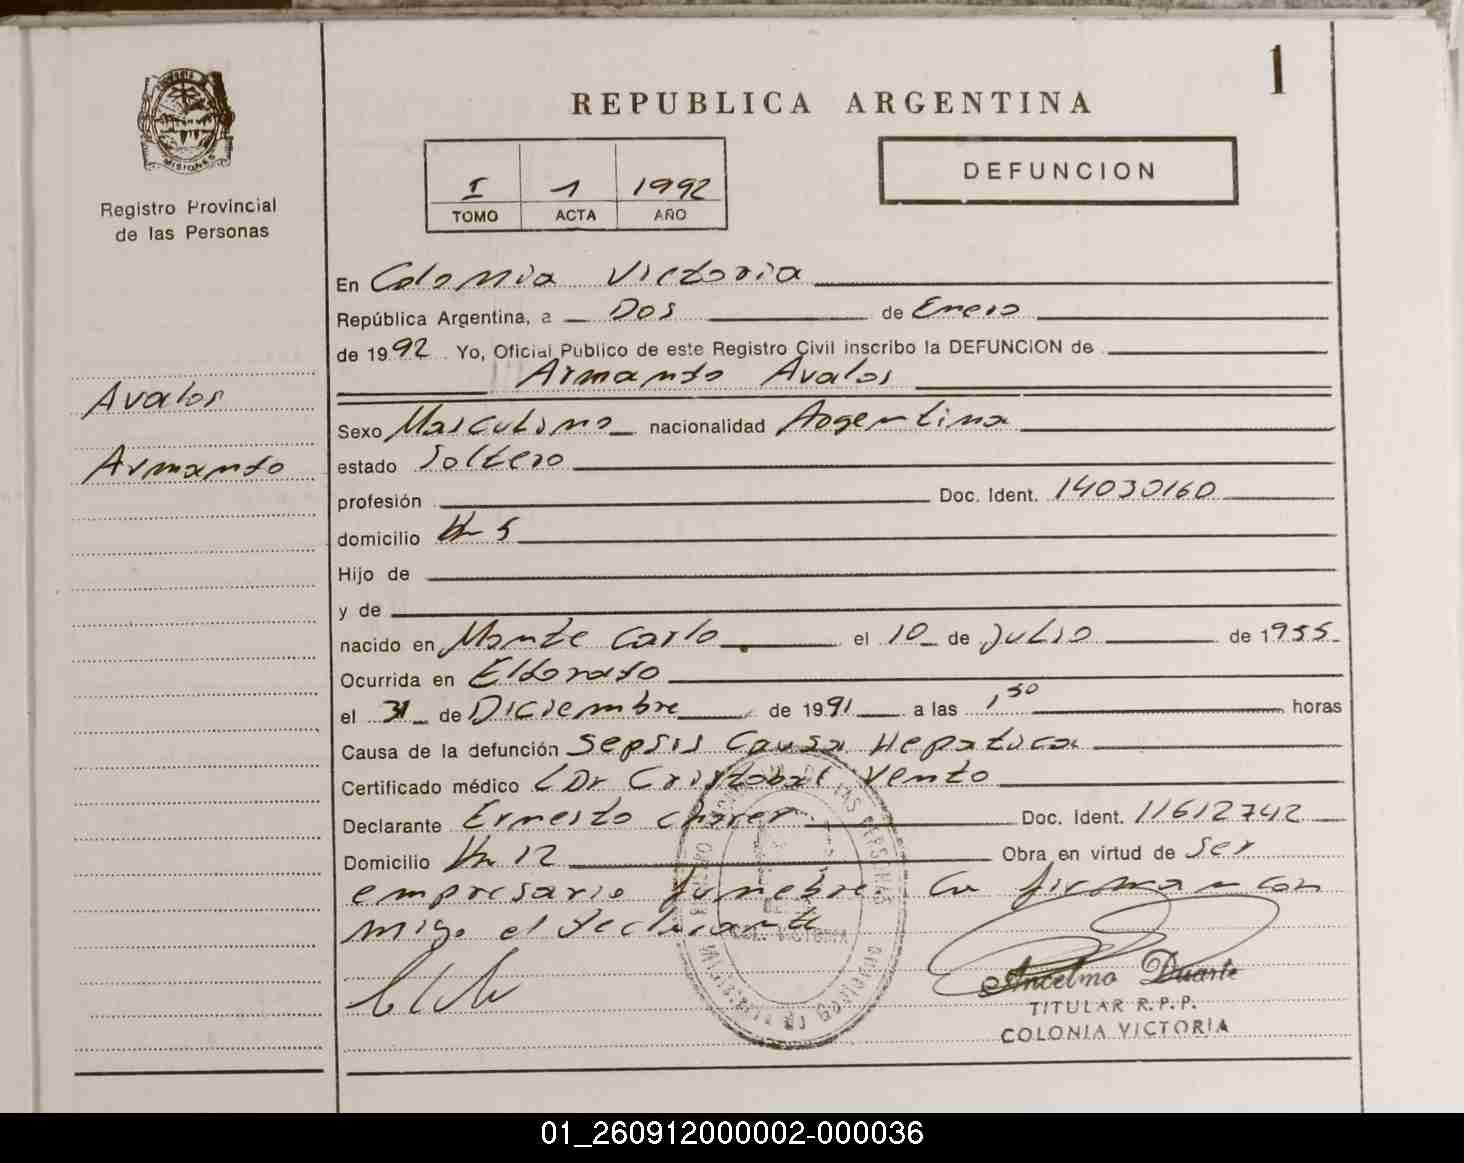 1
REPUBLICA ARGENTINA
MISIONES
I 1 1992
TOMO ACTA AÑO
DEFUNCION
Registro Provincial
de las Personas
En Colonia Victoria
República Argentina, a Dos de Enero
de 1992. Yo, Oficial Publico de este Registro Civil inscribo la DEFUNCION de
Armando Avalos
Avalos
Armando
Sexo Masculino nacionalidad Argentina
estado Soltero
profesión Doc. Ident. 14030160
domicilio Km 5
Hijo de
y de
nacido en Monte Carlo el 10 de Julio de 1955
Ocurrida en Eldorado
el 31 de Diciembre de 1991 a las 1,50 horas
Causa de la defunción Sepsis Causa Hepatica
Certificado médico Dr Cristobal Vento
Declarante Ernesto Doc. Ident. 11612742
Domicilio Km 12 Obra en virtud de Ser
empresario funebre. firman con
migo el declarante
DE LAS PERSONAS
COL. VICTORIA
Ministerio de Gobierno
Ancelmo Duarte
TITULAR R.P.P.
COLONIA VICTORIA
01_260912000002-000036